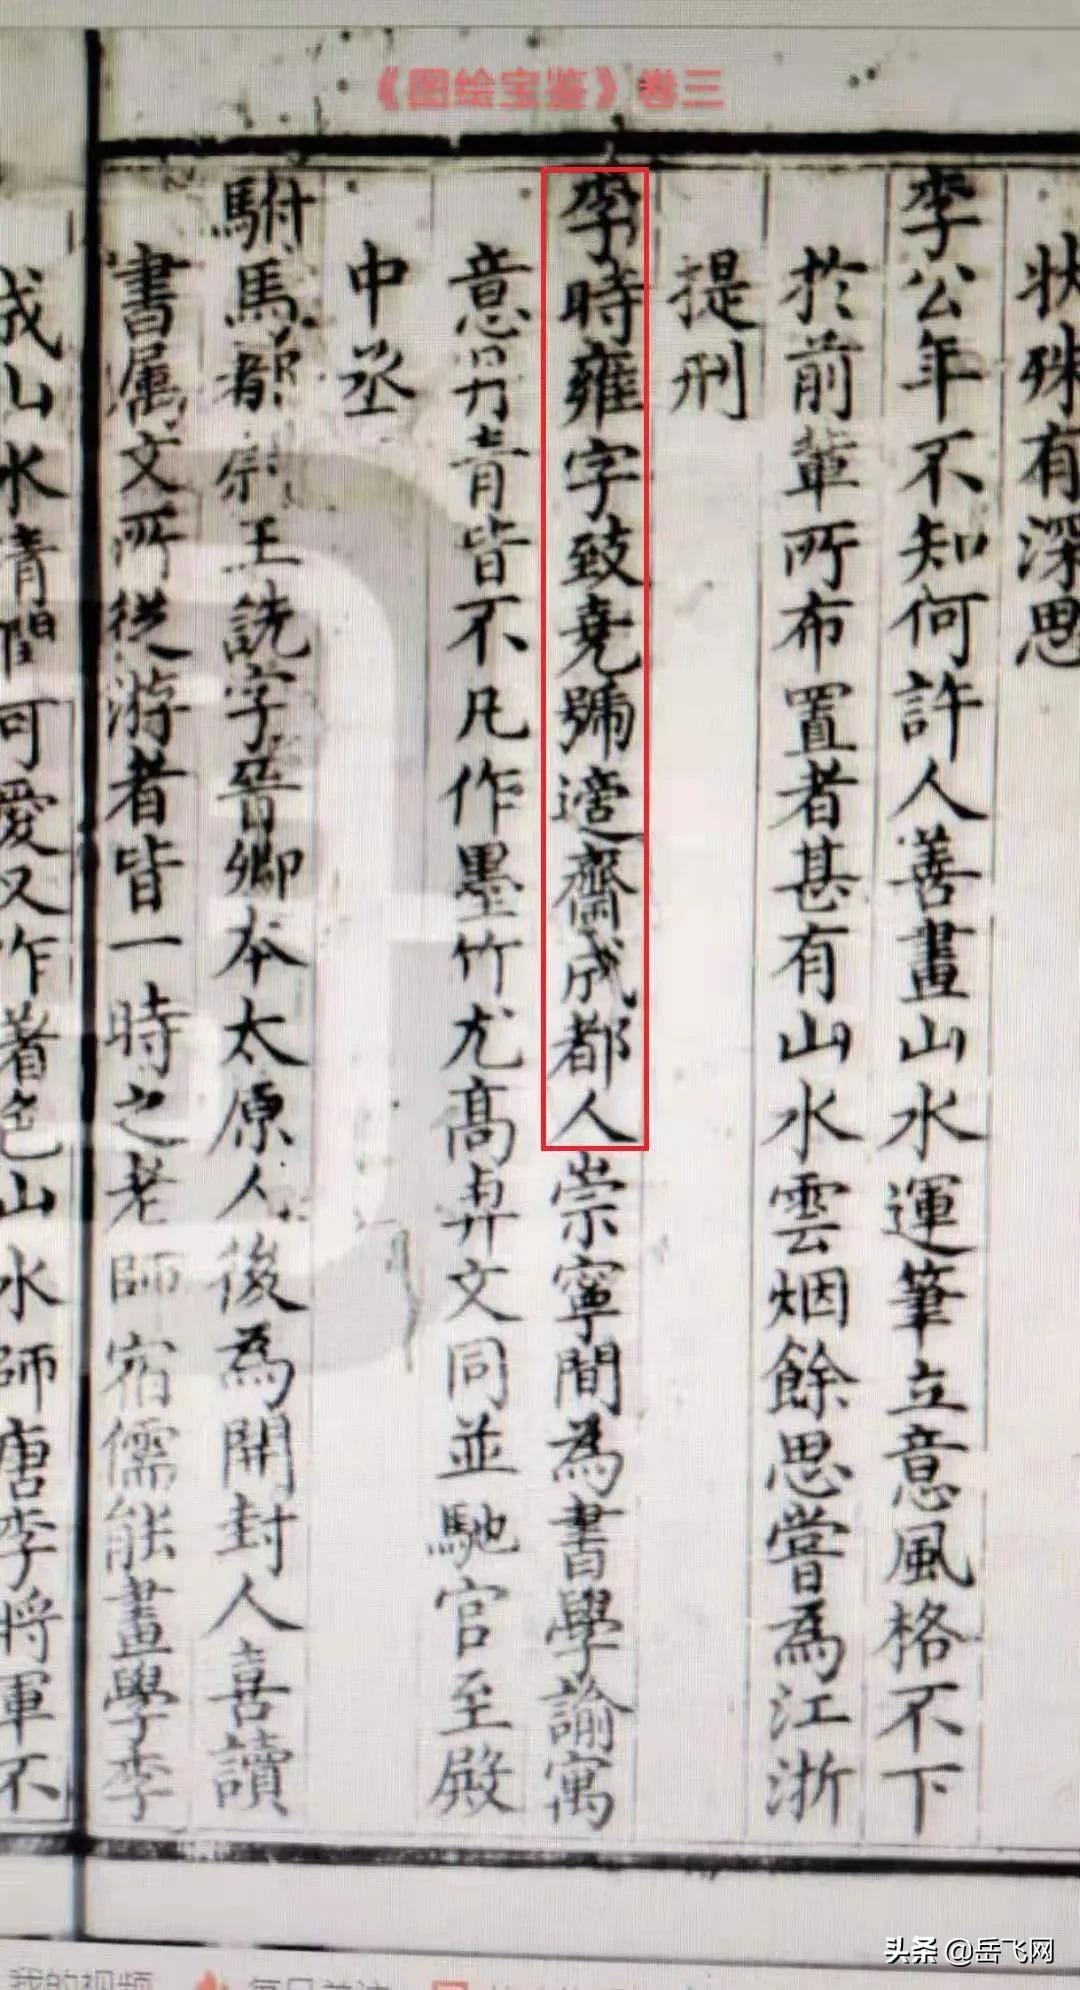 《图绘宝鉴》卷三
状殊有深思
李公年不知何許人善畫山水運筆立意風格不下
於前輩所布置者甚有山水雲烟餘思嘗為江浙
提刑
李時雍字致堯號適齋成都人崇寧間為書學諭寓
意丹青皆不凡作墨竹尤高與文同並馳官至殿
中丞
駙馬都尉王詵字晉卿本太原人後為開封人喜讀
書属文所從游者皆一時之老師宿儒能畫學李
成山水清潤可愛又作著色山水師唐李將軍不
我的视频
每日关注
头条 @岳飞网